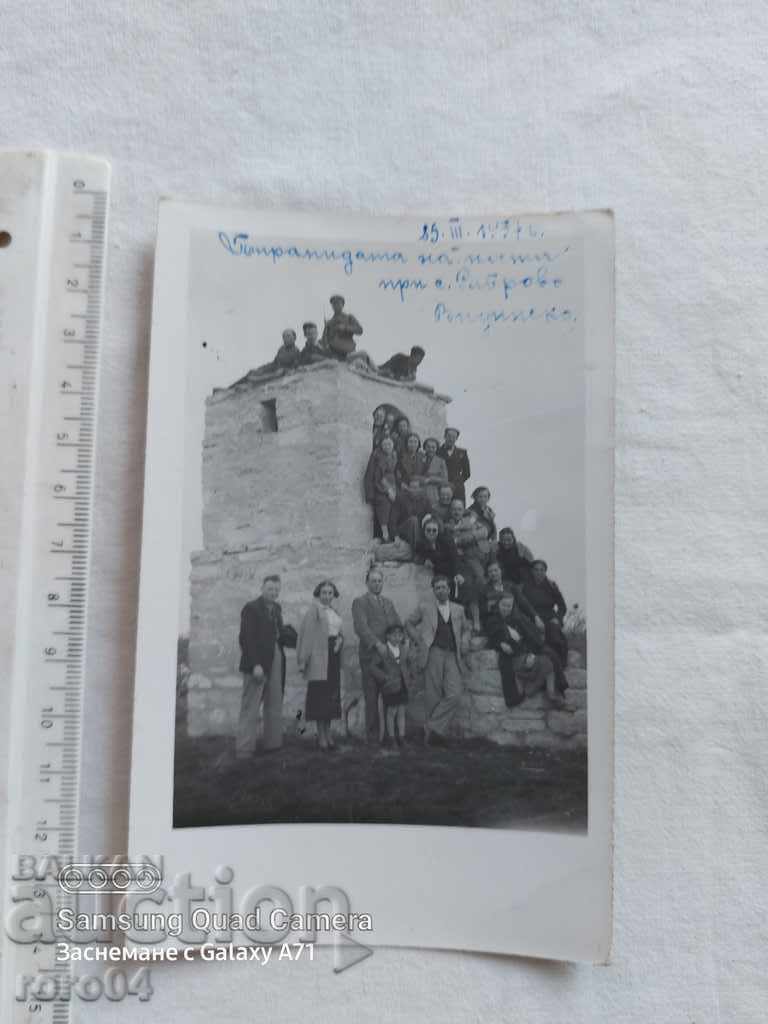 25. III. 1937 г.
Пирамидата на поста
при с.
0
1
2
3
4
5
6
7
8
9
10
11
12
13
5
BALKAN
auction
Samsung Quad Camera
Заснемане с Galaxy A71
roro04